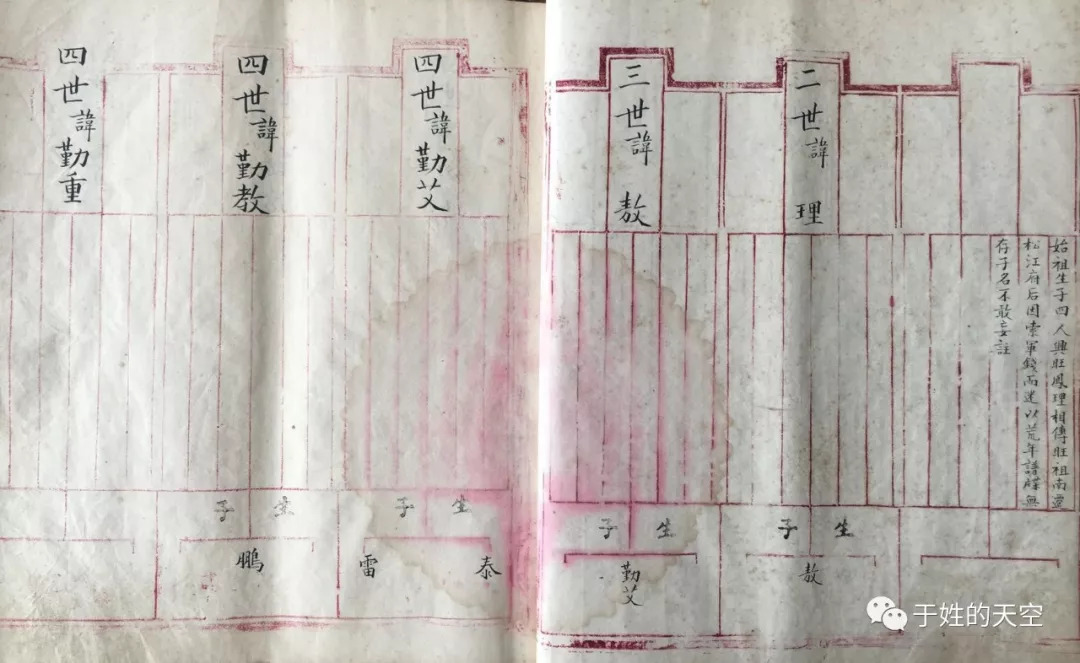 始祖生子四人興旺鳳理相傳旺祖南遷
松江府后因索軍錢而迷以荒年譜牒無
存子名不敢妄註
二世諱理
生子
敖
三世諱敖
生子
勤艾
四世諱勤艾
生子
泰
雷
四世諱勤教
生子
鵬
四世諱勤重
于姓的天空